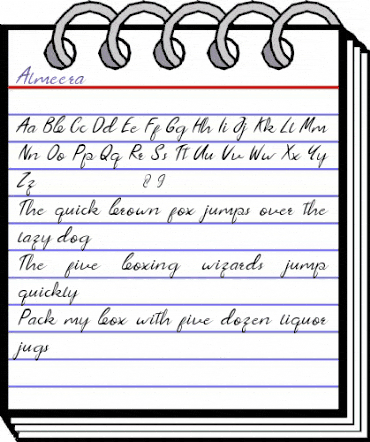 Almeera
Aa Bb Cc Dd Ee Ff Gg Hh Ii Jj Kk Ll Mm
Nn Oo Pp Qq Rr Ss Tt Uu Vv Ww Xx Yy
Zz 8 9
The quick brown fox jumps over the
lazy dog
The five boxing wizards jump
quickly
Pack my box with five dozen liquor
jugs